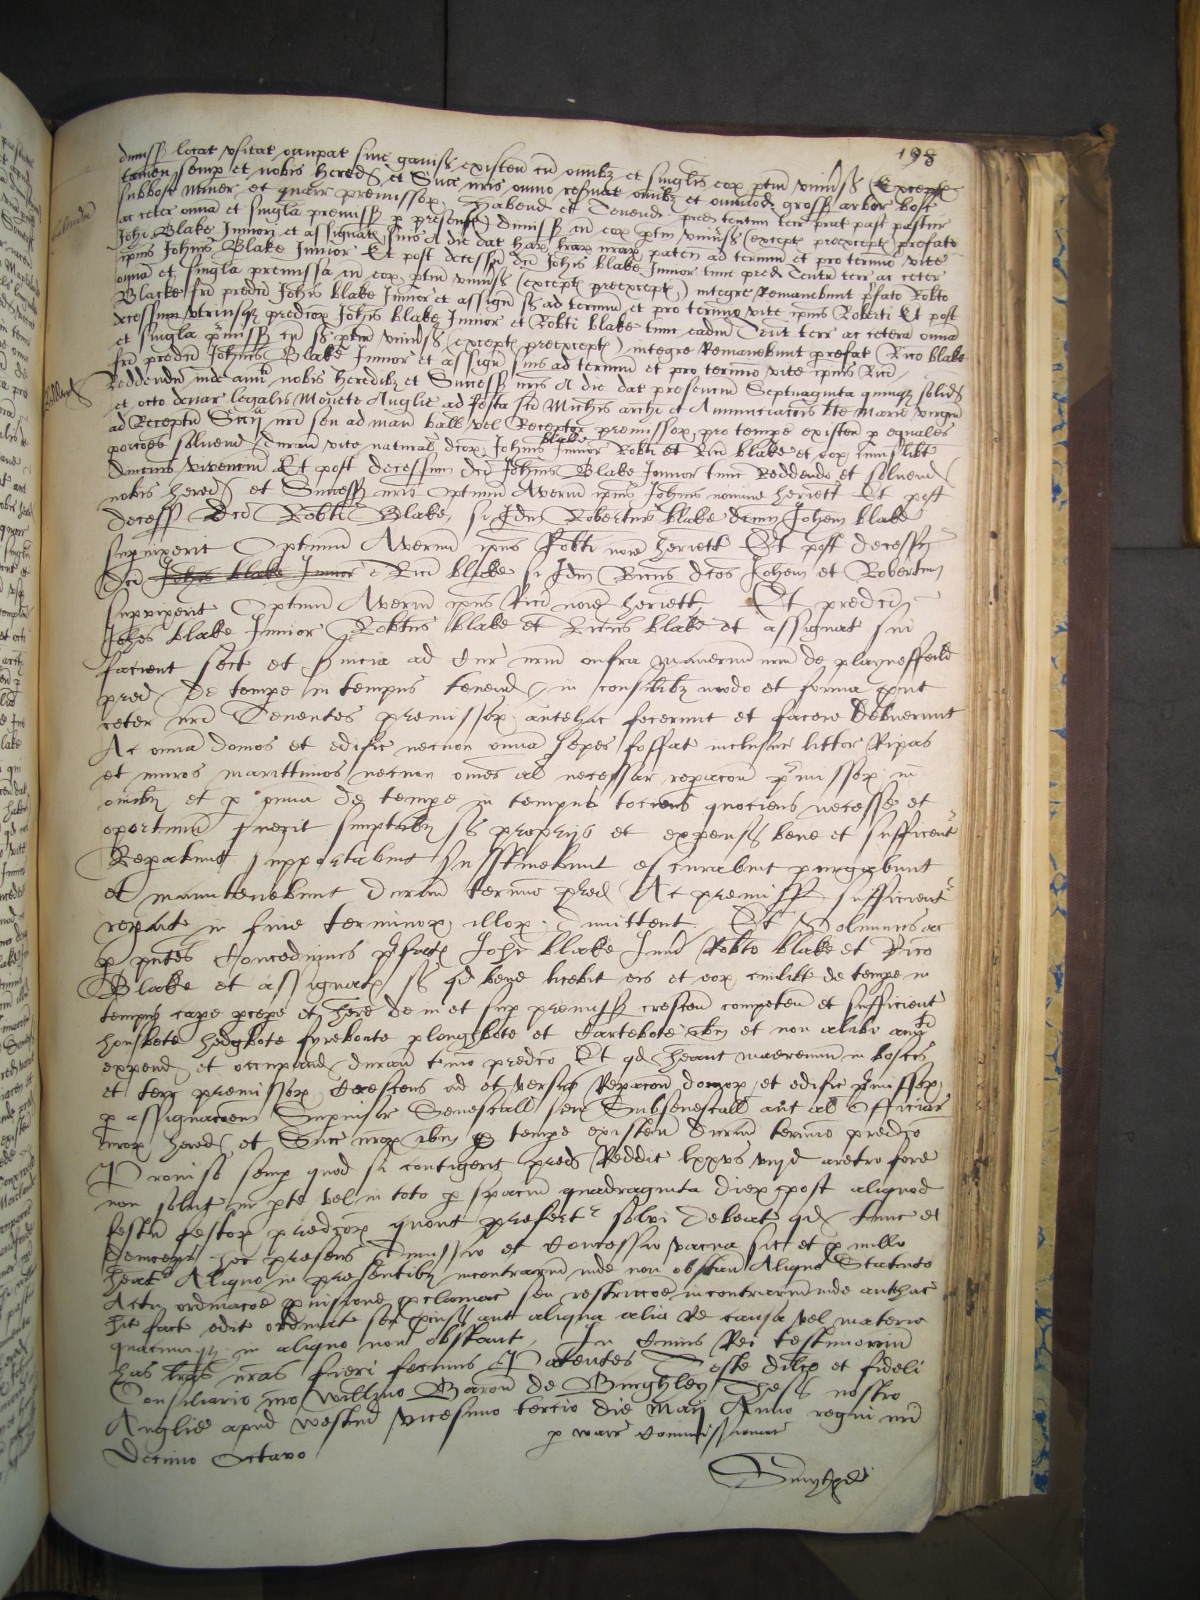 198
dimiss locat usitat occupat sive gavis existen cu omibz et singlis eor ptin univsis (Except
tamen semp et nobis hered et Succ nris omio reservat omibz et omimod gross arbor bosc
subbosc Miner et quarr premissor Habend et Tenend pred tentum terr prat past pastur
habendu
ac ceter omia et singla premiss p presentes dimiss cu eor ptin univsis (except preexcept) prefato
Johi Blake Juniori et assignat suis A die dat har lrar nrar paten ad terminu et pro termino vite
ipius Johnis Blake Junior Et post decessum dci Johis blake Junior tunc pred Tentu terr ac ceter
omia et singla premissa cu eor ptin univsis (except preexcept) integre Remanebunt pfato Robto
Blake fri predci Johis blake Junior et assign s ad terminu et pro termino vite ipius Roberti Et post
decessum utriusqz predcor Johis blake Junior et Robti blake tunc eadm Tent terr ac cetera omia
et singla pmissa cu s ptin univsis (except preexcept) integre Remanebunt prefat Rico blake
fri predci Johnis Blake Junior et assign suis ad terminu et pro termino vite ipius Rici
Reddend
Reddendu inde annti nobis heredibz et Success nris A die dat presenciu Septuaginta quinqz solid
et octo denar legalis Monete Anglie ad festa sci Michis archi et Annunciacois bte Marie virgin
ad Receptu Scaccii nri seu ad man ball vel Receptor premissor pro tempe existen p equales
porcoes solvend duran vite natural dcor Johnis blake Junior Robti et Rici blake et eor cuiuslibt
diucius viventiu Et post decessum dci Johnis Blake Junior tunc Reddendo et solvend
nobis hered et Success nris optimu Averiu ipius Johnis nomine heriett Et post
decess dci Robti Blake si Idm Robertus blake dcum Johem blake
supvixerit Optimu Averiu ipius Robti noie heriett Et post decess
dci Johis blake Junior Rici blake si Idm Ricus dcos Johem et Robertum
supvixerit Optimu Averiu ipius Rici noie heriett Et predci
Johes blake Junior Robtus blake et Ricus blake et assignat sui
facient sect et svicia ad Cur nram infra manerium nrm de playneffeild
pred de tempe in tempus tenend in consilibz modo et forma prout
ceter nri Tenentes premissor antehac fecerunt et facere debuerunt
Ac omia domos et edific necnon omia sepes fossat inclusur littor Ripas
et muros marittimos necnon omes al necessar reparacon pmissor in
omibz et p omia de tempe in tempus tociens quociens necesse et
oportunu fuerit sumptibz s proprijs et expensis bene et sufficient
Reparabunt supportabunt sustinebunt escurabunt purgabunt
et manutenebunt duran termio pred Ac premiss sufficient
reparat in fine terminor illor dimittent Et Volumus ac
p pntes Concedimus pfat Johi blake Juni Robto blake et Rico
Blake et assignat s qd bene licebit eis et eor cuilibt de tempe in
tempus cape pcepe et here de in et sup premiss crescen competen et sufficient
housbote hedgbote fyrebonte ploughbote et Cartebote ibm et non alibi annti
expend et occupand duran tmio predco Et qd heant maeremiu in boscis
et terr premissor Crescens ad et versus Reparacon domor et edific pmissor
p assignacoem Supvisor Senescall seu Subsenescall aut al Officiar
nror hered et Succ nror ibm p tempe existen duran termio predco
Proviso semp quod si contigerit pred Reddit lxxvs viijd aretro fore
non solut in pte vel in toto p spaciu quadraginta dier post aliquod
festu festor predcor quout prefert solvi debeat qd tunc et
deinceps hec presens dimissio et Concessio vacua sit et p nullo
heat Aliquo in presentibz incontrariu inde non obstan Aliquo Statuto
Actu ordinacoe pvisione pclamac seu restriccoe incontrariu inde antehac
hit fact edit ordinat seu pvis aut aliqua alia Re causa vel materia
quacumqz in aliquo non obstant In Cuius Rei testimonium
has lras nras fieri fecimus Patentes Teste dilco et fideli
Consiliario nro Willmo Baron de Burghley Thess nostro
Anglie apud Westm vicesimo tercio die Maij Anno regni nri
Decimo Octavo
p war Commissionar